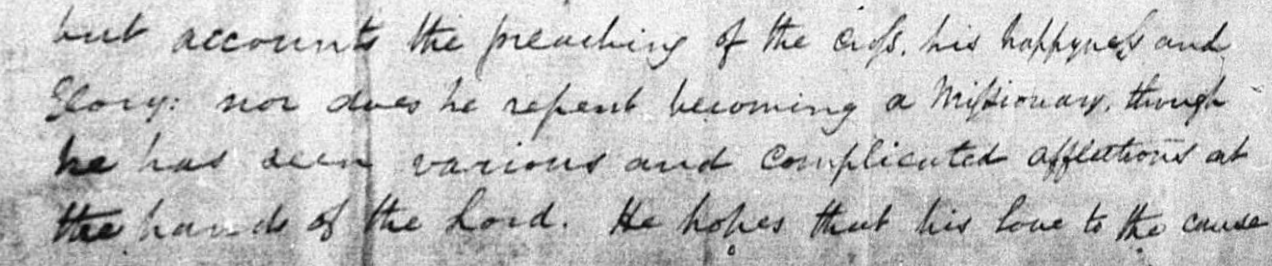 but accounts the preaching of the cross, his happyness and
Glory: nor does he repent becoming a Missionary, though
he has seen various and complicated afflictions at
the hands of the Lord. He hopes that his love to the cause